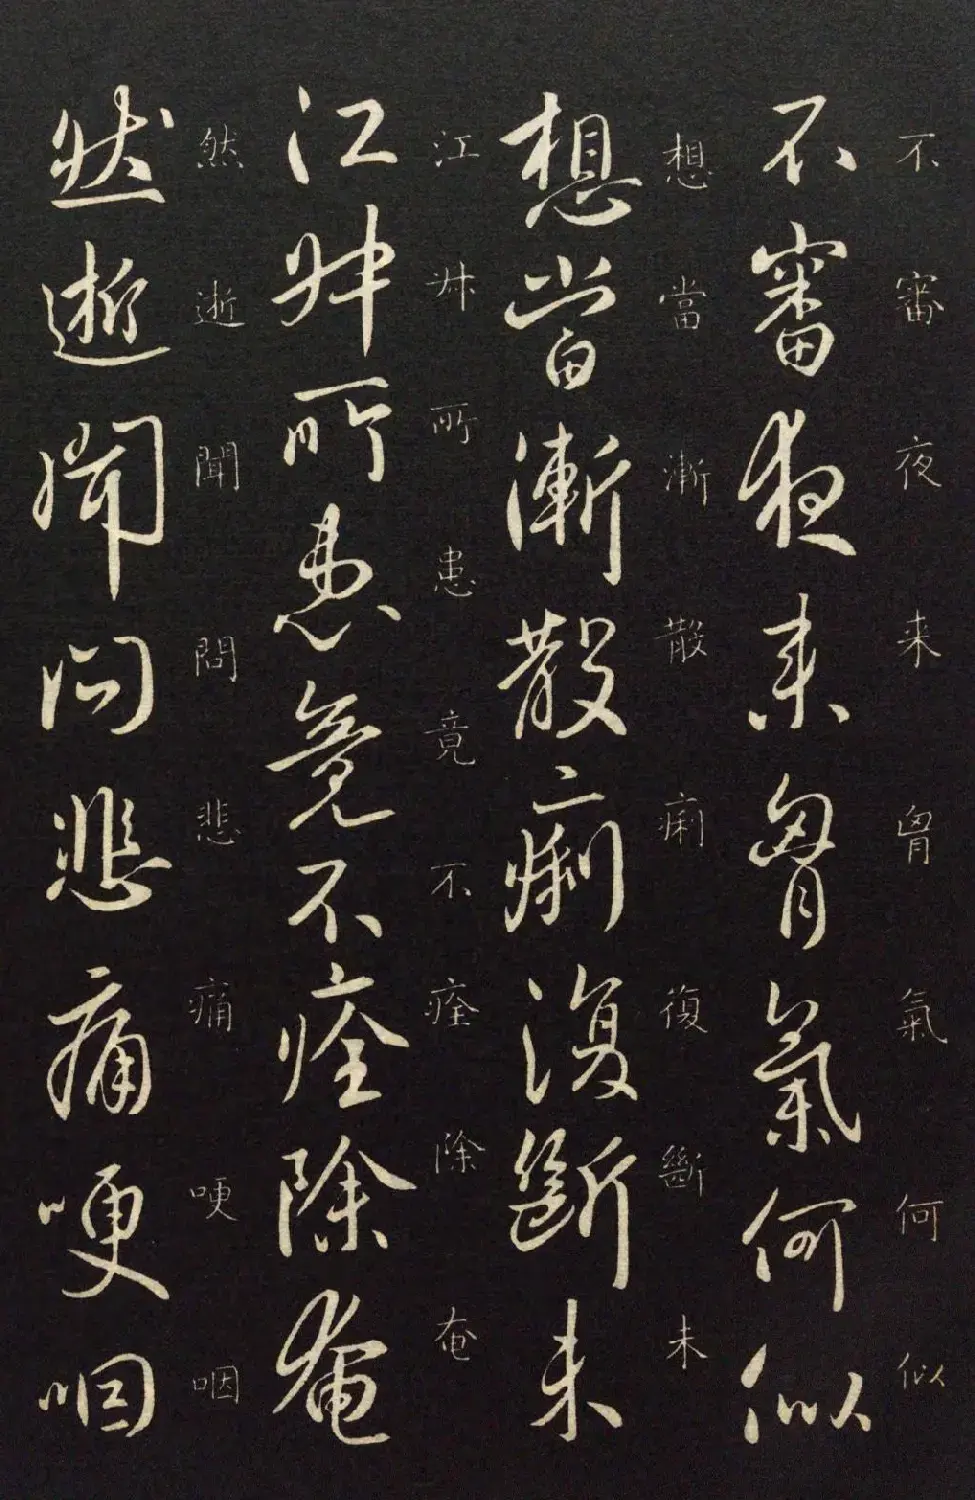 不審夜来胷氣何似
不審夜来胷氣何似
想當漸散痢復斷未
想當漸散痢復斷未
江所患竟不痊除奄
江所患竟不痊除奄
然逝聞問悲痛哽咽
然逝聞問悲痛哽咽